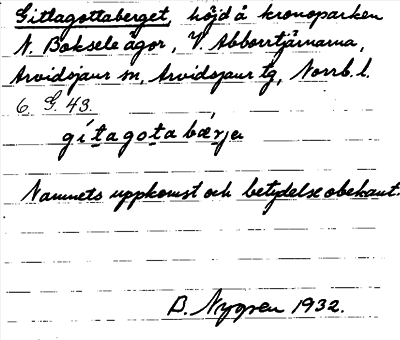 Gittagottaberget, höjd å kronoparken
N. Boksele ägor, V. Abborrtjärnarna,
Arvidsjaur sn, Arvidsjaur tg, Norrb. l.
6 G. 43.
gítagota bærje
Namnets uppkomst och betydelse obekant.
B. Nygren 1932.